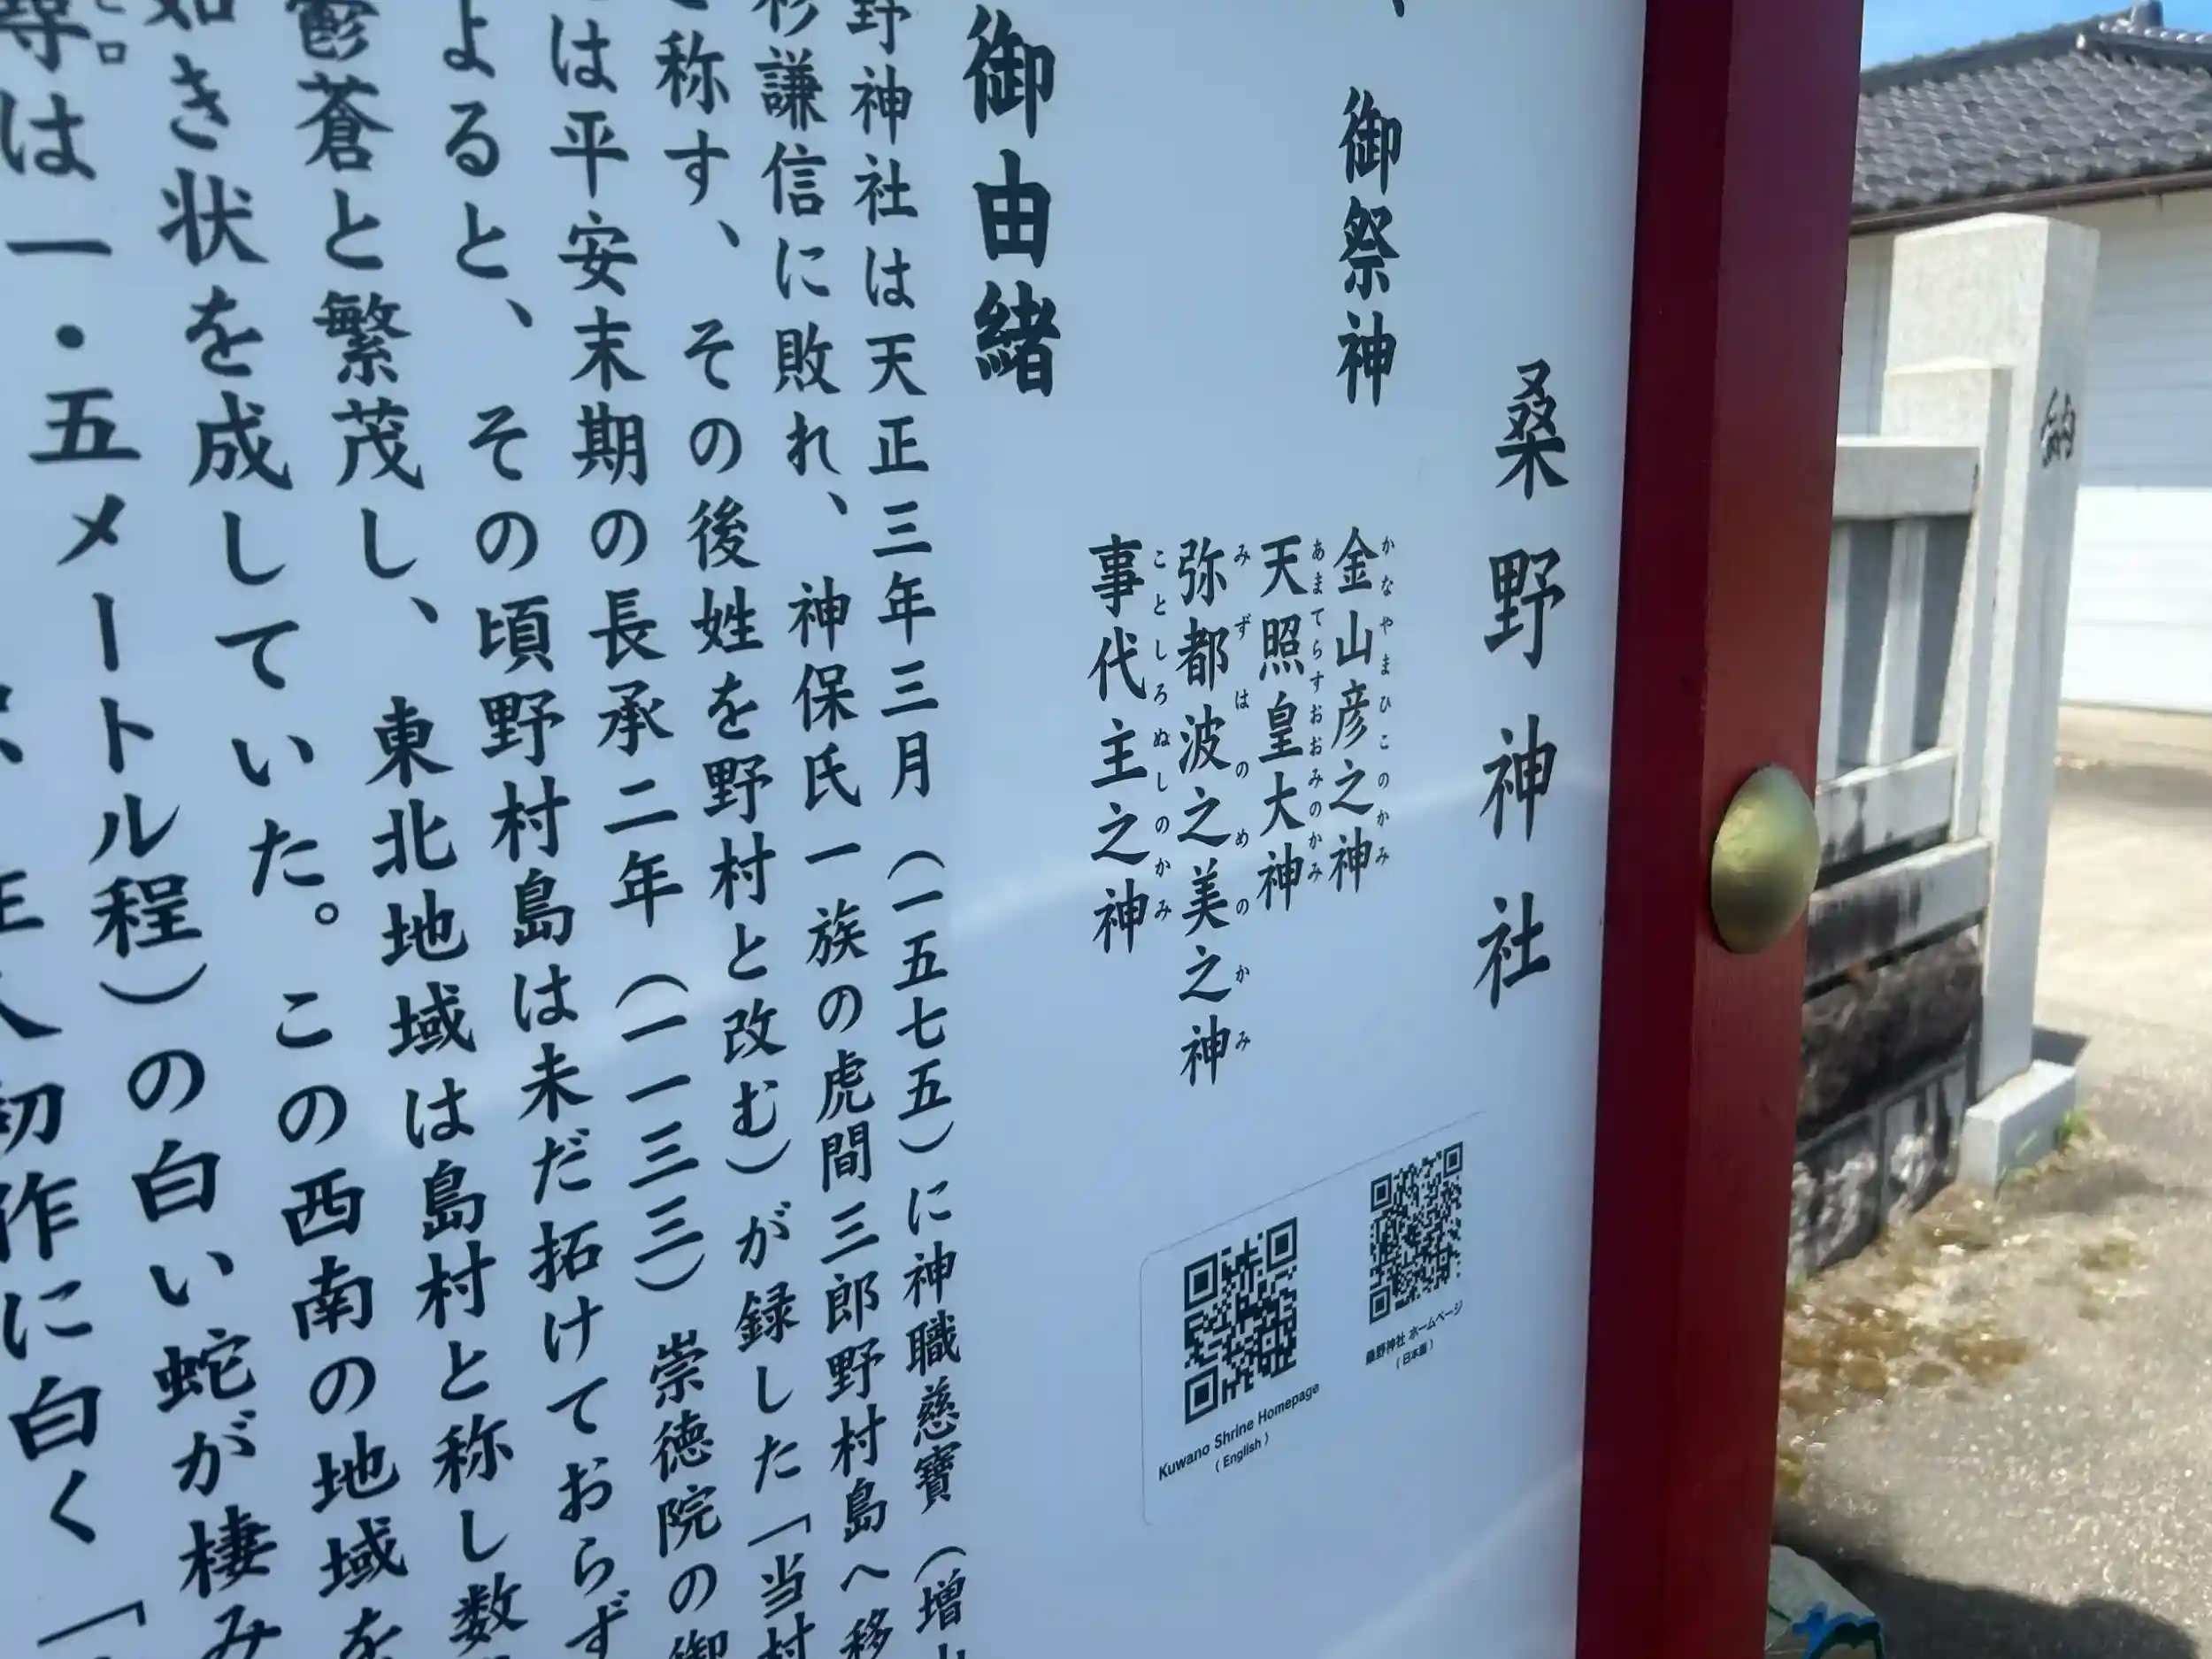 桑野神社
御祭神
金山彦之神
かなやまひこのかみ
天照皇大神
あまてらすおおみのかみ
弥都波之美之神
みずはのめのかみ
事代主之神
ことしろぬしのかみ
御由緒
野神社は天正三年三月(一五七五)に神職慈寶(増
杉謙信に敗れ、神保氏一族の虎間三郎野村島へ移
称す、その後姓を野村と改む)が録した「当村
は平安末期の長承二年(一一三三)崇徳院の御
よると、その頃野村島は未だ拓けておらず
鬱蒼と繁茂し、東北地域は島村と称し数
如き状を成していた。この西南の地域を
尋は一・五メートル程)の白い蛇が棲み
ヒロ
初作に白く「
桑野神社 ホームページ
(日本語)
Kuwano Shrine Homepage
(English)
納